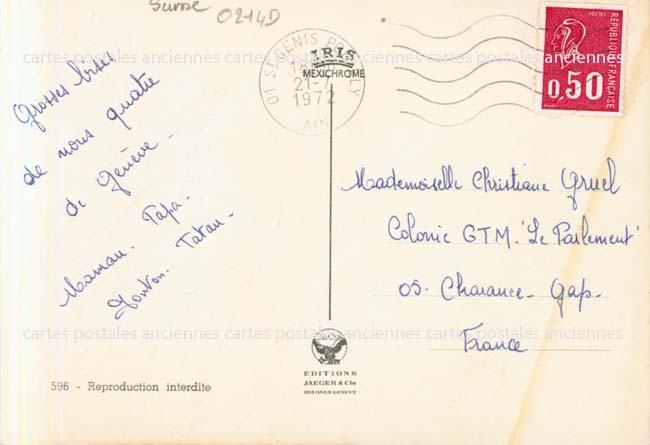 Suisse 0214D
Grosses bises
de nous quatre
de Genève -
Maman. Papa -
Tonton. Tatan -
01 ST GENIS POUILLY
21-7
1972
AIN
IRIS
MEXICHROME
POSTES
REPUBLIQUE FRANCAISE
0,50
Mademoiselle Christiane Gruel
Colonie GTM. 'Le Parlement'
05. Charance - Gap -
France
cartes postales anciennes cartes postales anciennes cartes postales anciennes
cartes postales anciennes cartes postales anciennes cartes postales anciennes
cartes postales anciennes cartes postales anciennes cartes postales anciennes
EDITIONS
JAEGER & Cie
1213 ONEX GENEVE
596 - Reproduction interdite